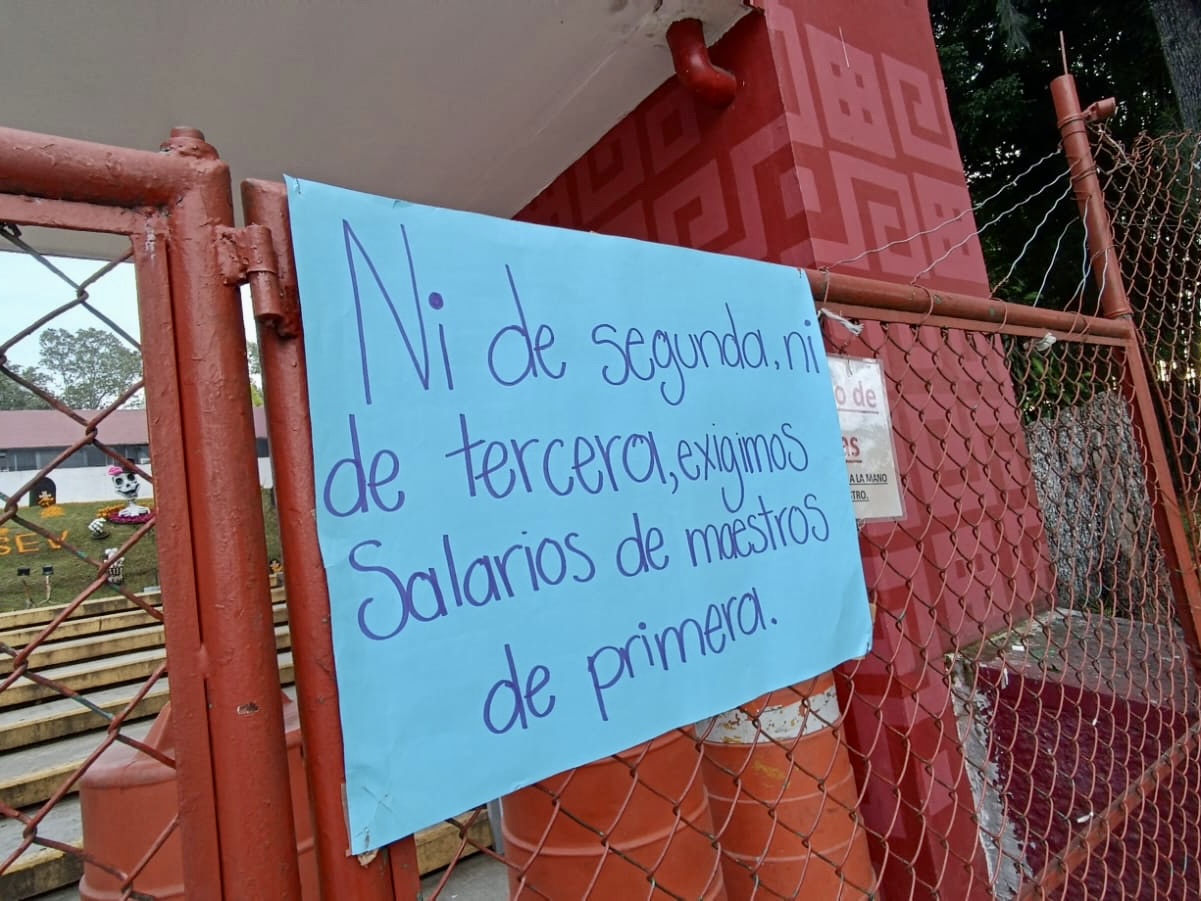 Ni de segunda, ni
de tercera, exigimos
Salarios de maestros
de primera.
o de
es
A LA MANO
TRO.
SEV